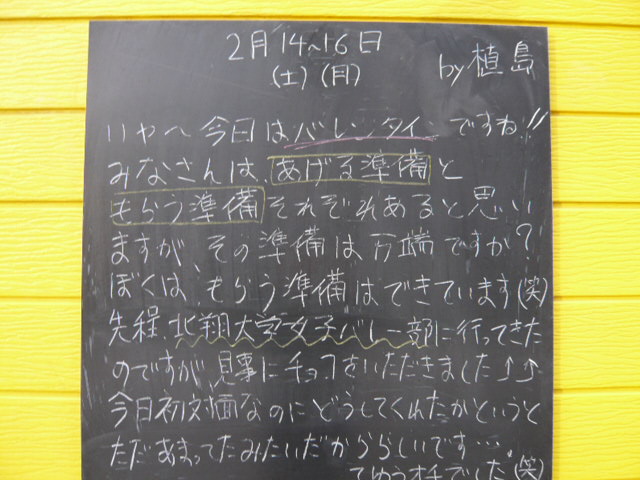 2月14~16日
(土)(月)
by植島
いや〜今日はバレンタインですね!!
みなさんは、あげる準備と
もらう準備それぞれあると思い
ますが、その準備は万端ですか?
ぼくは、もらう準備はできています(笑)
先程、北翔大学女子バレー部に行ってきた
のですが、見事にチョコをいただきました↑↑
今日初対面なのにどうしてくれたかというと
ただあまってたみたいだかららしいです…
てゆうオチでした"(笑)